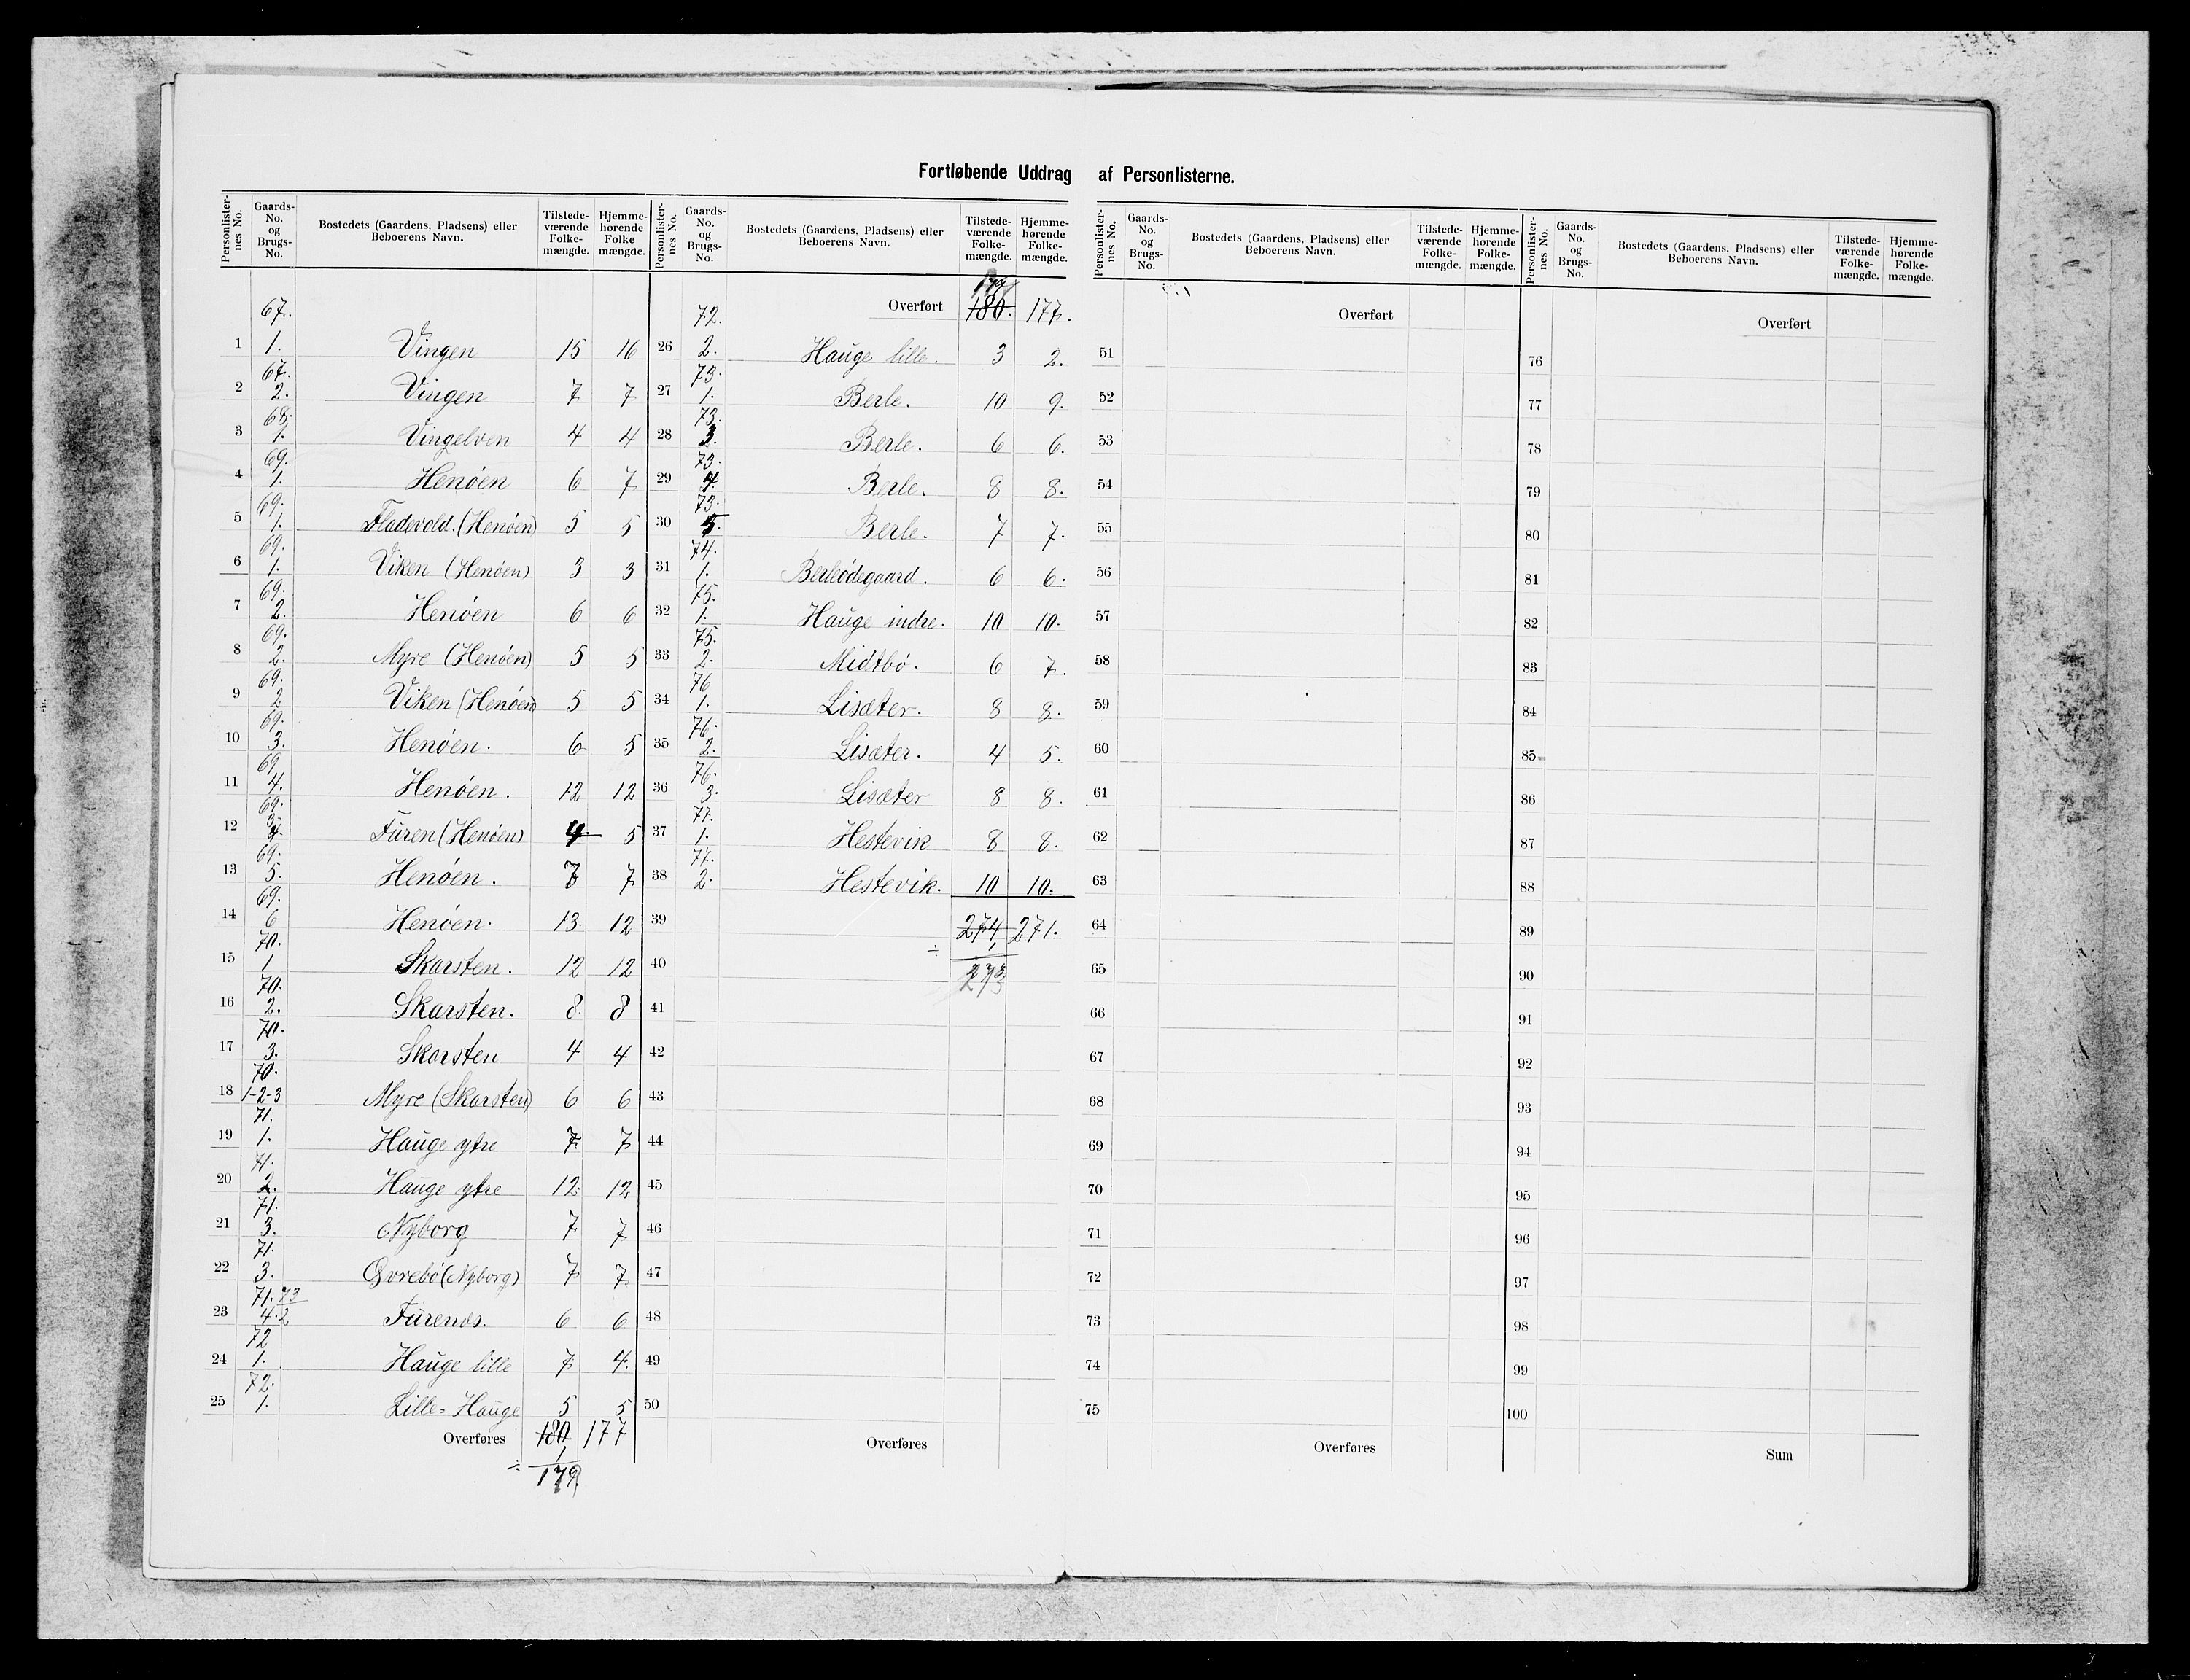 Fortløbende Uddrag af Personlisterne.
Personlister-nes No. | Gaards-No. og Brugs-No. | Bostedets (Gaardens, Pladsens) eller Beboerens Navn. | Tilstede-værende Folke-mængde. | Hjemme-hørende Folke mængde.
1 | 67. 1. | Vingen | 15 | 16
2 | 67. 2. | Vingen | 7 | 7
3 | 68. 1. | Vingelven | 4 | 4
4 | 69. 1. | Henøen | 6 | 7
5 | 69. 1. | Fladevold. (Henøen) | 5 | 5
6 | 69. 1. | Viken (Henøen) | 3 | 3
7 | 69. 2. | Henøen | 6 | 6
8 | 69. 2. | Myre (Henøen) | 5 | 5
9 | 69. 2 | Viken (Henøen) | 5 | 5
10 | 69. 3. | Henøen. | 6 | 5
11 | 69. 4. | Henøen. | 12 | 12
12 | 69. | Furen (Henøen) | 4 | 5
13 | 69. 5. | Henøen. | 7 | 7
14 | 69. 6 | Henøen. | 13 | 12
15 | 70. 1 | Skarsten. | 12 | 12
16 | 70. 2. | Skarsten. | 8 | 8
17 | 70. 3. | Skarsten | 4 | 4
18 | 70. 1-2-3 | Myre (Skarsten) | 6 | 6
19 | 71. 1. | Hauge ytre | 7 | 7
20 | 71. 2. | Hauge ytre | 12 | 12
21 | 71. 3. | Nyborg | 7 | 7
22 | 71. 3. | Øvrebø (Nyborg) | 7 | 7
23 | 71. 23 4. 2 | Furenes. | 6 | 6
24 | 72 1. | Hauge lille | 7 | 4.
25 | 72. 1. | Lille-Hauge | 5 | 5
Overføres | 180 | 177
÷ 1
179
Personlister-nes No. | Gaards-No. og Brugs-No. | Bostedets (Gaardens, Pladsens) eller Beboerens Navn. | Tilstede-værende Folke-mængde. | Hjemme-hørende Folke-mængde.
179
Overført | 180. | 177.
26 | 72. 2. | Hauge lille. | 3 | 2.
27 | 73. 1. | Berle. | 10 | 9.
28 | 73. 3. | Berle. | 6 | 6.
29 | 73. 4. | Berle. | 8 | 8.
30 | 73. 5. | Berle. | 7 | 7.
31 | 74. 1. | Berleødegaard. | 6 | 6.
32 | 75. 1. | Hauge indre. | 10 | 10.
33 | 75. 2. | Midtbø. | 6 | 7.
34 | 76 1. | Lisæter. | 8 | 8.
35 | 76. 2. | Lisæter. | 4 | 5.
36 | 76. 3. | Lisæter | 8 | 8.
37 | 77. 1. | Hestevik | 8 | 8.
38 | 77. 2. | Hestevik. | 10 | 10.
39 | 274 | 271.
÷ 1
40 | 273
41
42
43
44
45
46
47
48
49
50
Overføres
Personlister-nes No. | Gaards-No. og Brugs-No. | Bostedets (Gaardens, Pladsens) eller Beboerens Navn. | Tilstede-værende Folke-mængde. | Hjemme-hørende Folke-mængde.
Overført
51
52
53
54
55
56
57
58
59
60
61
62
63
64
65
66
67
68
69
70
71
72
73
74
75
Overføres
Personlister-nes No. | Gaards-No. og Brugs-No. | Bostedets (Gaardens, Pladsens) eller Beboerens Navn. | Tilstede-værende Folke-mængde. | Hjemme-hørende Folke-mængde.
Overført
76
77
78
79
80
81
82
83
84
85
86
87
88
89
90
91
92
93
94
95
96
97
98
99
100
Sum